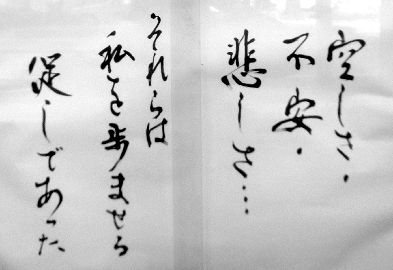 空しさ・
不安・
悲しさ・・・
それらは
私を歩ませる
促しであった